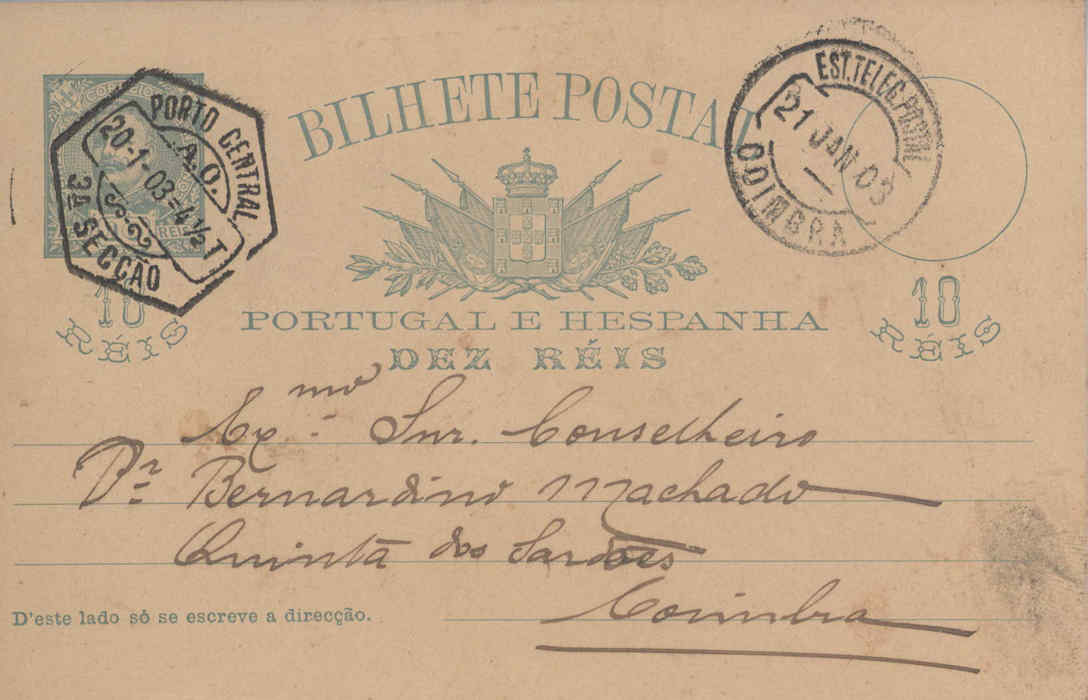 CORREIO
PORTO CENTRAL
A.O.
20-1-03-4½T
S-2
3A SECCÃO
REIS
BILHETE POSTAL
EST. TELEG. POSTAL
21 JAN 03
COIMBRA
10 RÉIS
10 RÉIS
PORTUGAL E HESPANHA
DEZ RÉIS
Exmo Snr. Conselheiro
Dr Bernardino Machado
Quinta dos Sardões
Coimbra
D'este lado só se escreve a direcção.